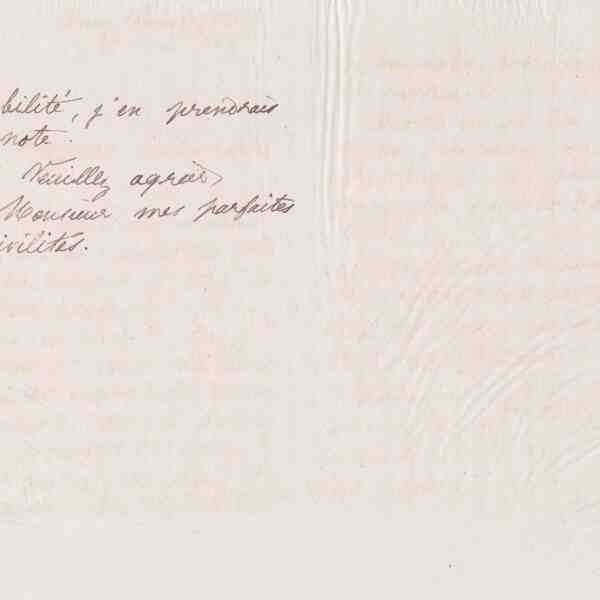 bilité, j'en prendrais
note.
Veuillez agréer
Monsieur mes parfaites
ivilités.